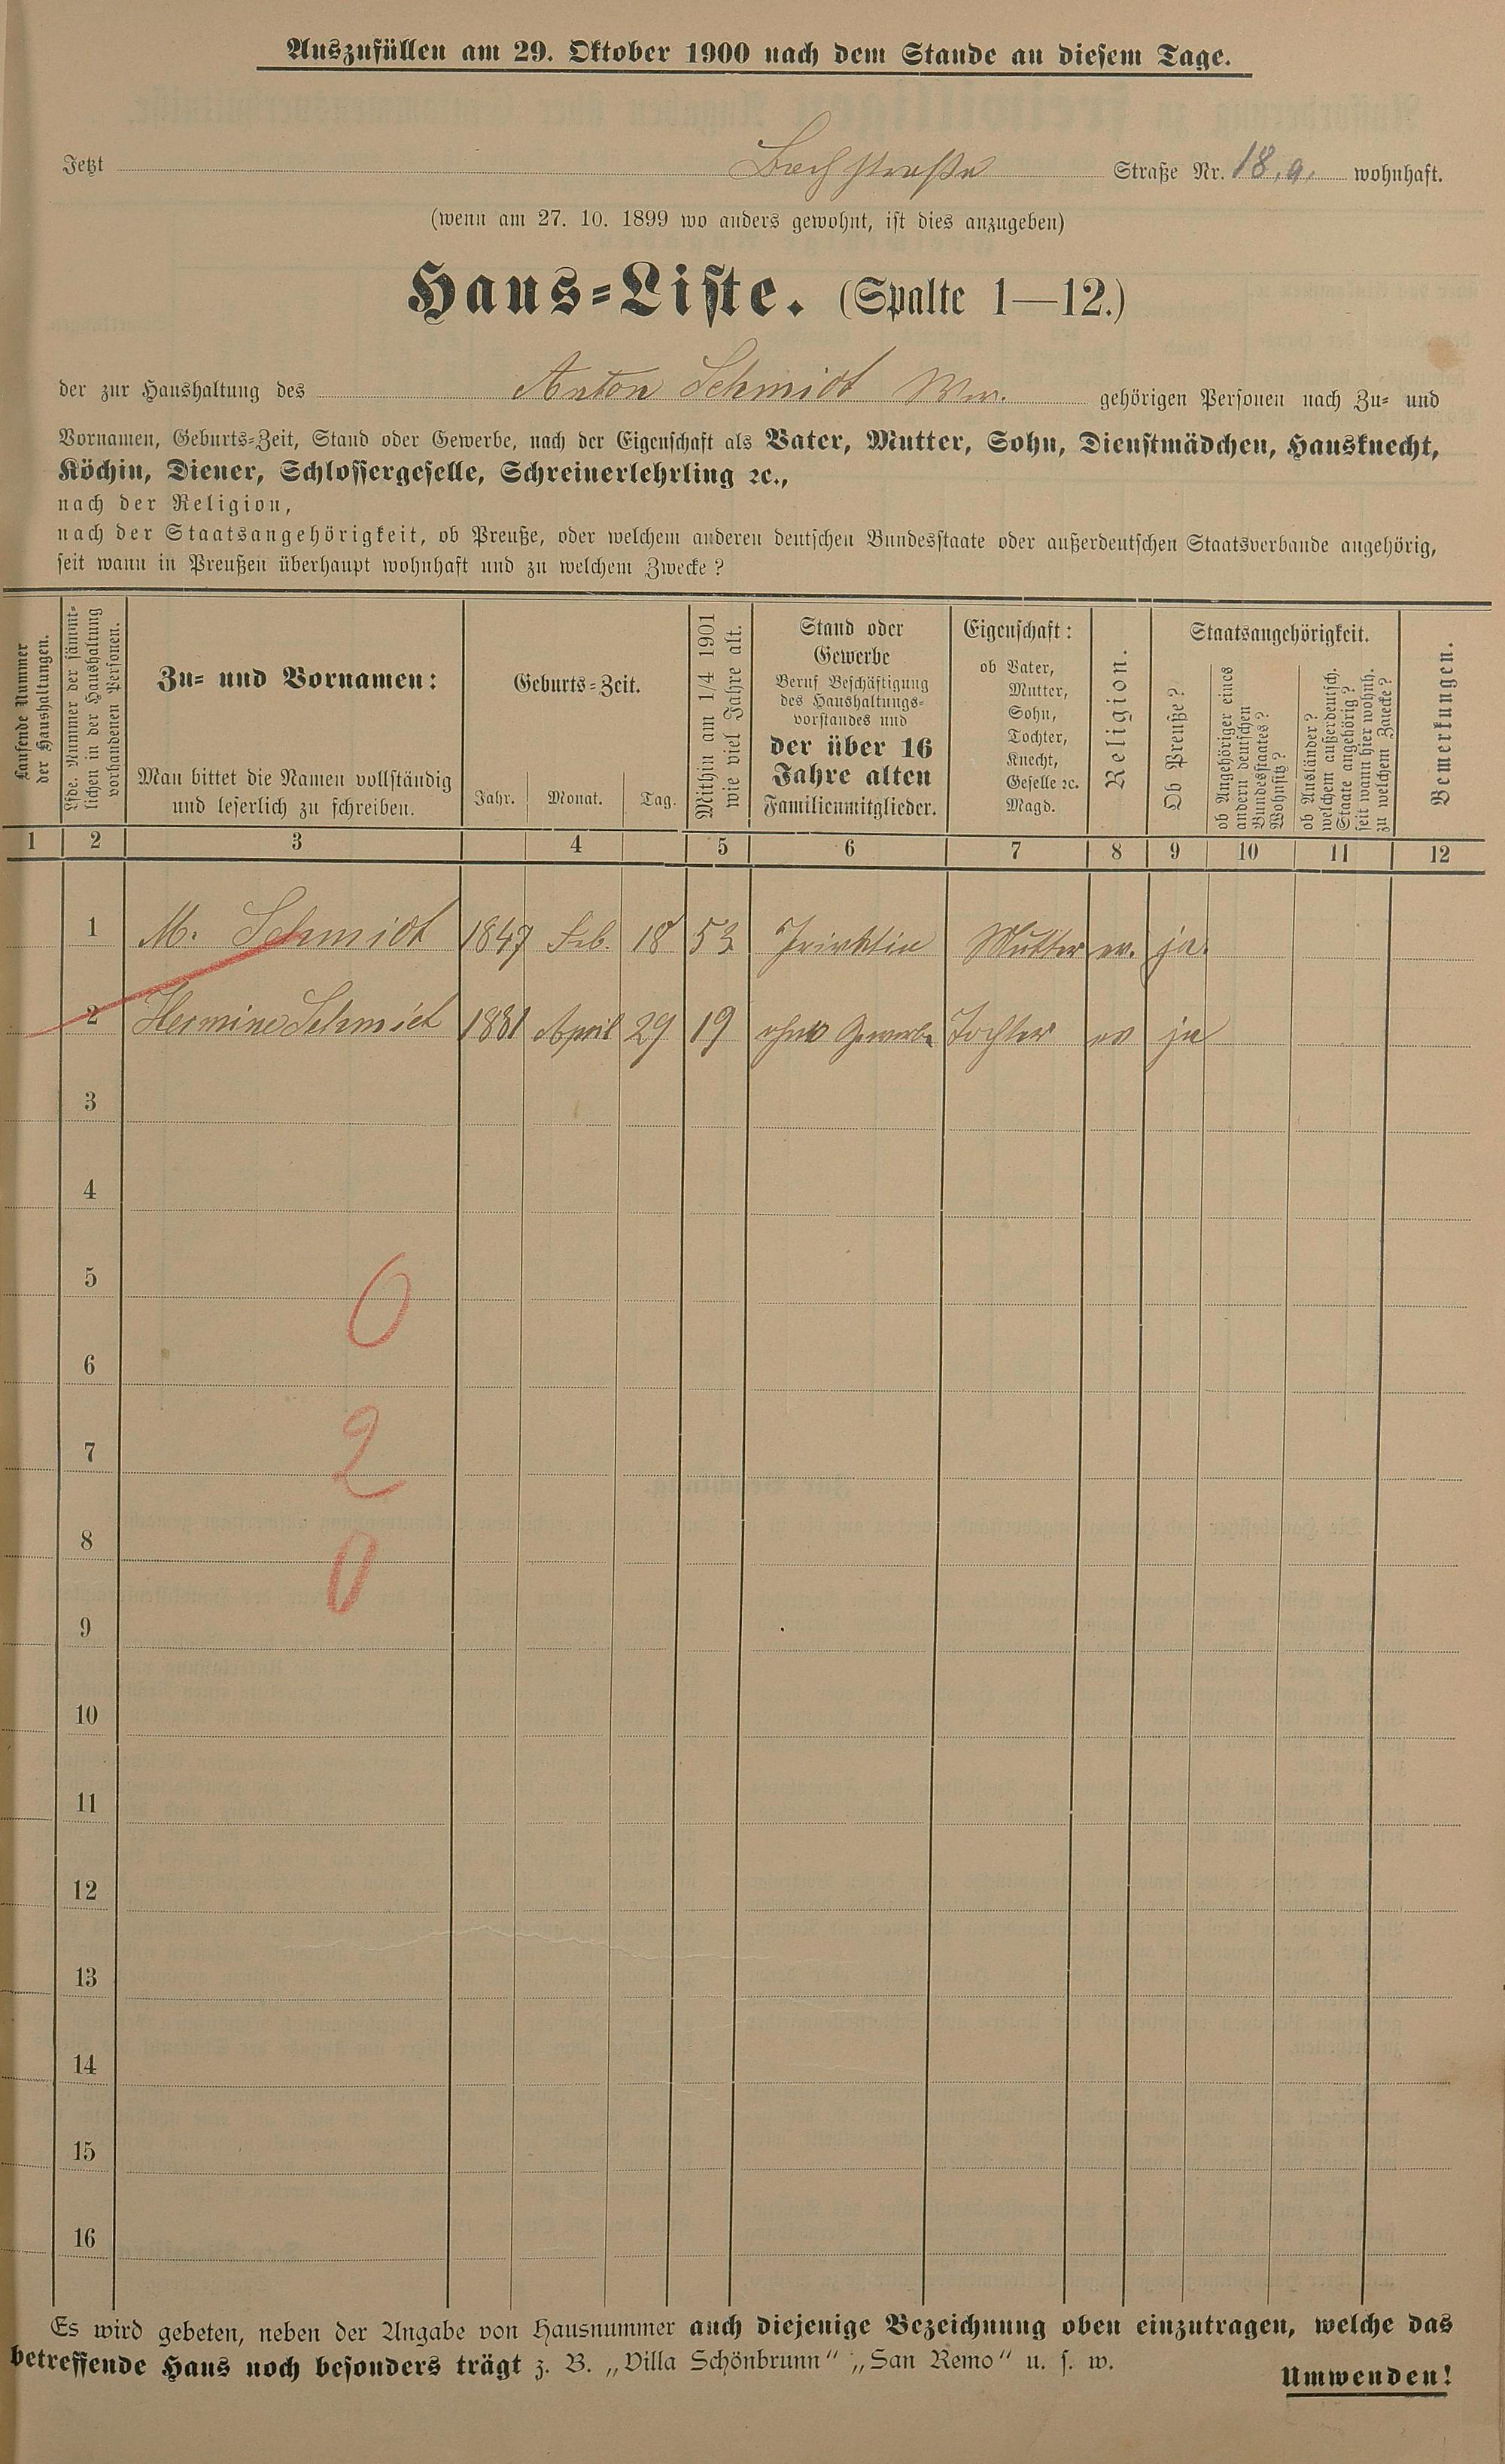 Auszufüllen am 29. Oktober 1900 nach dem Stande an diesem Tage.
Jetzt Bachstraße Straße Nr. 18.a. wohnhaft.
(wenn am 27. 10. 1899 wo anders gewohnt, ist dies anzugeben)
Haus-Liste. (Spalte 1—12.)
der zur Haushaltung des Anton Schmidt Ww. gehörigen Personen nach Zu- und
Vornamen, Geburts-Zeit, Stand oder Gewerbe, nach der Eigenschaft als Vater, Mutter, Sohn, Dienstmädchen, Hausknecht,
Köchin, Diener, Schlossergeselle, Schreinerlehrling ꝛc.,
nach der Religion,
nach der Staatsangehörigkeit, ob Preuße, oder welchem anderen deutschen Bundesstaate oder außerdeutschen Staatsverbande angehörig,
seit wann in Preußen überhaupt wohnhaft und zu welchem Zwecke?
Laufende Nummer
der Haushaltungen.
Lfde. Nummer der sämmt-
lichen in der Haushaltung
vorhandenen Personen.
Zu- und Vornamen:
Man bittet die Namen vollständig
und leserlich zu schreiben.
Geburts-Zeit.
Jahr. Monat. Tag.
Mithin am 1/4 1901
wie viel Jahre alt.
Stand oder
Gewerbe
Beruf Beschäftigung
des Haushaltungs-
vorstandes und
der über 16
Jahre alten
Familienmitglieder.
Eigenschaft:
ob Vater,
Mutter,
Sohn,
Tochter,
Knecht,
Geselle ꝛc.
Magd.
Religion.
Staatsangehörigkeit.
Ob Preuße?
ob Angehöriger eines
andern deutschen
Bundesstaates?
Wohnsitz?
ob Ausländer?
welchem außerdeutsch.
Staate angehörig?
seit wann hier wohnh.
zu welchem Zwecke?
Bemerkungen.
1 2 3 4 5 6 7 8 9 10 11 12
1 M. Schmidt 1847 Feb. 18 53 Privatin Mutter ev. ja.
2 Hermine Schmidt 1881 April 29 19 ohne Gewerbe Tochter ev ja
3
4
5
0
6
7
2
8
0
9
10
11
12
13
14
15
16
Es wird gebeten, neben der Angabe von Hausnummer auch diejenige Bezeichnung oben einzutragen, welche das
betreffende Haus noch besonders trägt z. B. „Villa Schönbrunn" „San Remo" u. s. w.
Umwenden!